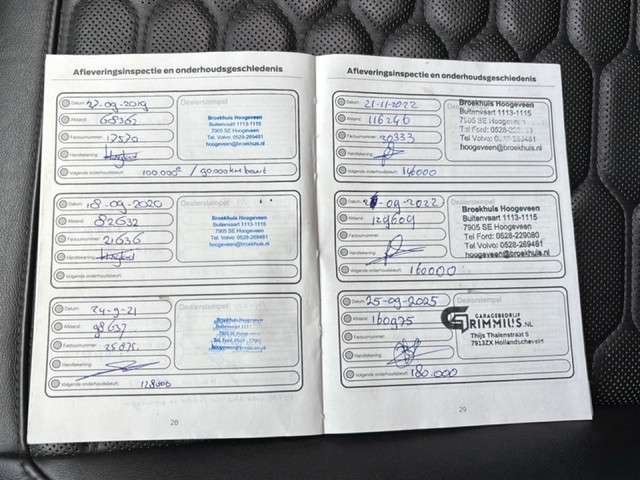 Afleveringsinspectie en onderhoudsgeschiedenis
Datum: 27-09-2019
Afstand: 65362
Factuurnummer: 17570
Handtekening:
Volgende onderhoudsbeurt: 100.000 / 90.000km beurt
Dealerstempel
Broekhuis Hoogeveen
Buitenvaart 1113-1115
7905 SE Hoogeveen
Tel. Volvo: 0528-269481
hoogeveen@broekhuis.nl
Datum: 18-09-2020
Afstand: 82632
Factuurnummer: 21636
Handtekening:
Volgende onderhoudsbeurt:
Broekhuis Hoogeveen
Buitenvaart 1113-1115
7905 SE Hoogeveen
Tel. Volvo: 0528-269481
hoogeveen@broekhuis.nl
Datum: 24-9-21
Afstand: 98637
Factuurnummer: 25075
Handtekening:
Volgende onderhoudsbeurt: 128000
Dealerstempel
Broekhuis Hoogeveen
Buitenvaart 1113-1115
28
Afleveringsinspectie en onderhoudsgeschiedenis
Datum: 21-11-2022
Afstand: 116246
Factuurnummer: 30333
Handtekening:
Volgende onderhoudsbeurt: 146000
Broekhuis Hoogeveen
Buitenvaart 1113-1115
7905 SE Hoogeveen
Tel Ford: 0528-229080
hoogeveen@broekhuis.nl
Datum: -09-2022
Afstand: 129609
Factuurnummer:
Handtekening:
Volgende onderhoudsbeurt: 160000
Broekhuis Hoogeveen
Buitenvaart 1113-1115
7905 SE Hoogeveen
Tel Ford: 0528-229080
Tel Volvo: 0528-269481
hoogeveen@broekhuis.nl
Datum: 25-09-2025
Afstand: 160975
Factuurnummer:
Handtekening:
Volgende onderhoudsbeurt: 180.000
GARAGEBEDRIJF
GRIMMIUS.NL
Thijs Thalenstraat 5
7913ZX Hollandscheveld
29